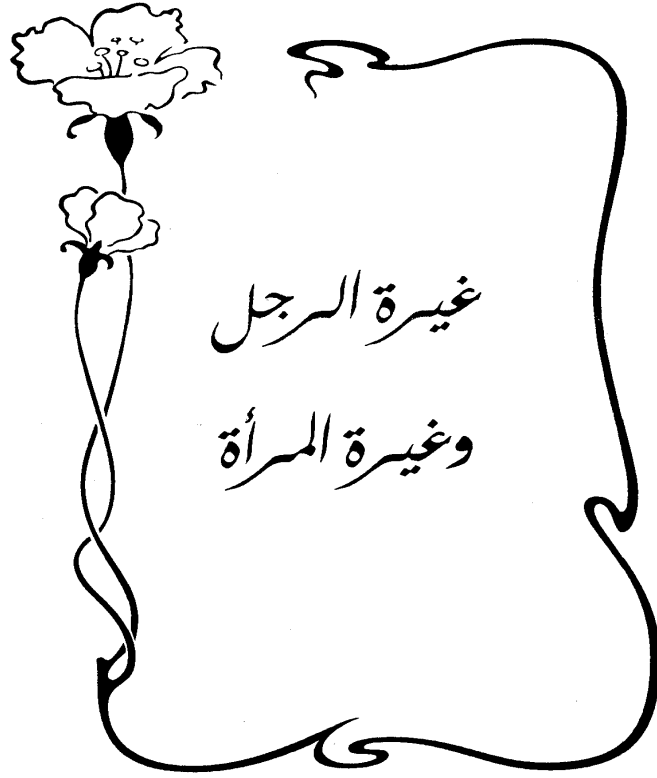 غيرة الرجل
وغيرة المرأة